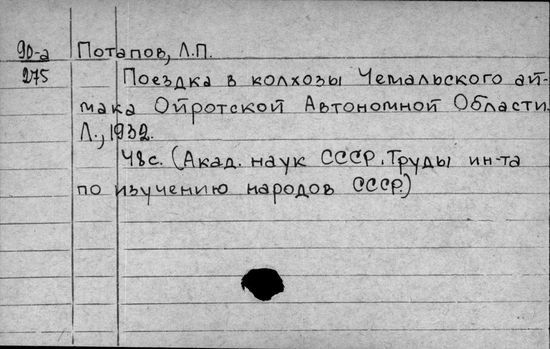 90-а Потапов, Л.П.
275 Поездка в колхозы Чемальского ай-
мака Ойротской Автономной Области.
Л., 1932.
48с. (Акад. наук СССР. Труды ин-та
по изучению народов СССР.)